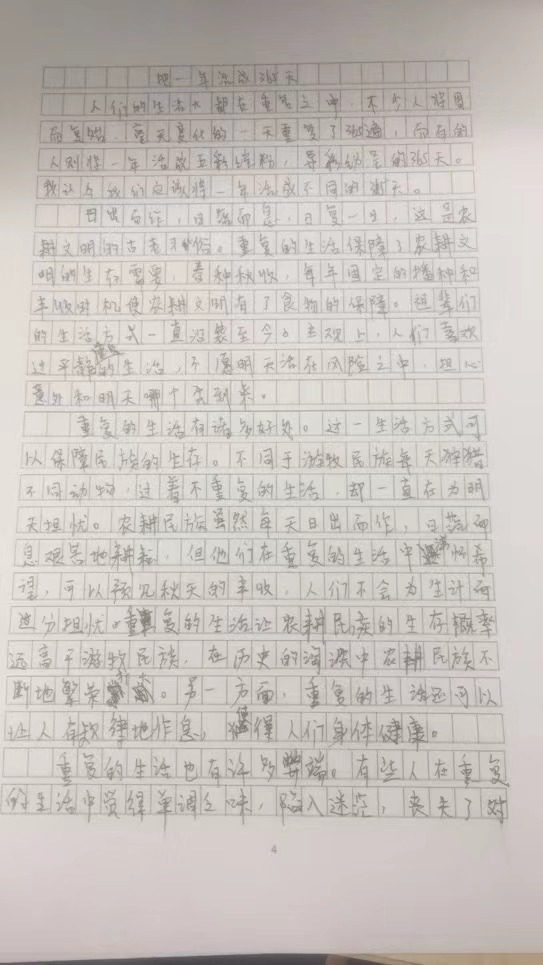 把一年活成365天
人们的生活大都在重复之中，不少人将周
而复始、毫无变化的一天重复了365遍，而有的
人则将一年活成五彩缤纷，异彩纷呈的365天。
我认为我们应该将一年活成不同的365天。
日出而作，日落而息，日复一日，这是农
耕文明的古老习俗。重复的生活保障了农耕文
明的生存需要，春种秋收，每年固定的播种和
丰收时机使农耕文明有了食物的保障。祖辈们
的生活方式一直沿袭至今。主观上，人们喜欢
过平静的生活，不愿明天活在风险之中，担心
意外和明天哪个先到来。
重复的生活有诸多好处。这一生活方式可
以保障民族的生存。不同于游牧民族每天狩猎
不同动物，过着不重复的生活，却一直在为明
天担忧。农耕民族虽然每天日出而作，日落而
息艰苦地耕耘，但他们在重复的生活中满怀希
望，可以预见秋天的丰收，人们不会为生计而
过分担忧。重复的生活让农耕民族的生存概率
远高于游牧民族，在历史的淘汰中农耕民族不
断地繁荣。另一方面，重复的生活还可以
让人有规律地作息，使得人们身体健康。
重复的生活也有许多弊端。有些人在重复
的生活中觉得单调乏味，陷入迷茫，丧失了对
4